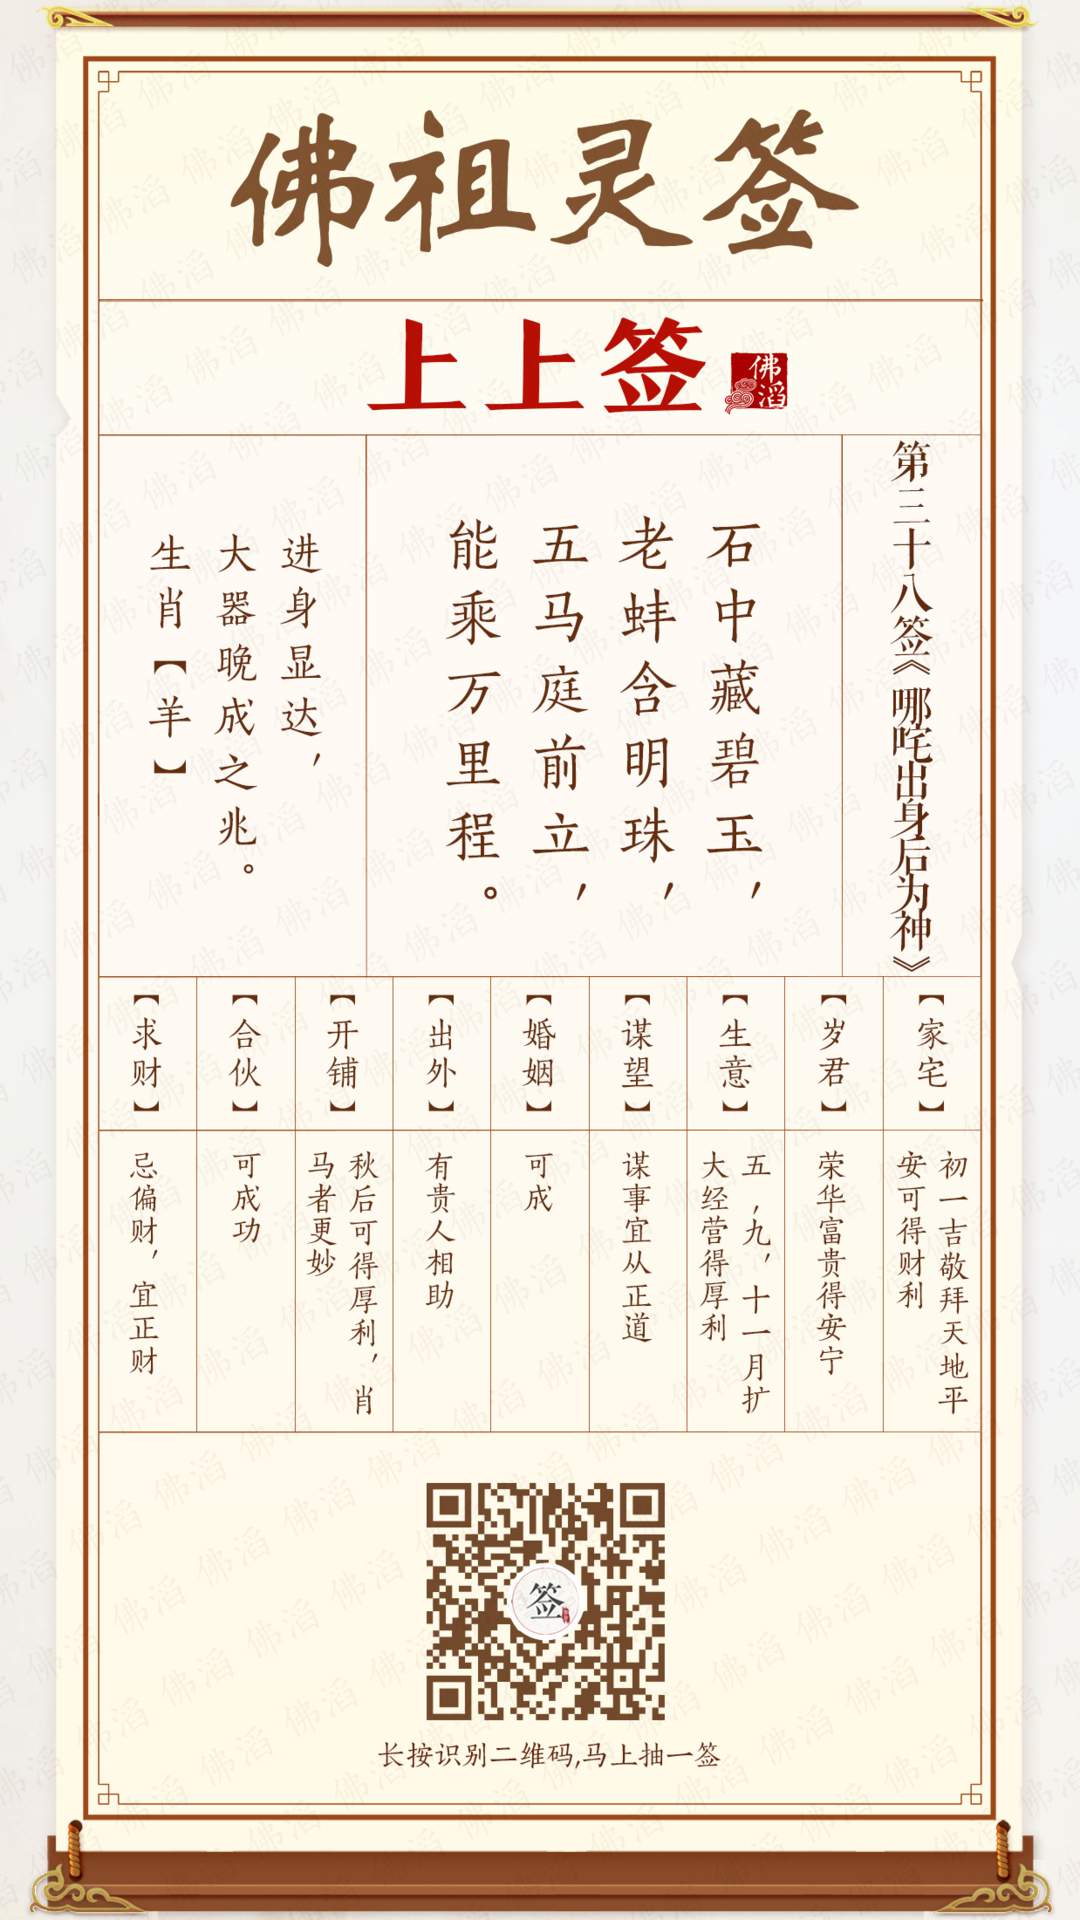 佛祖灵签
上上签
佛滔
第三十八签《哪咤出身后为神》
石中藏碧玉，
老蚌含明珠，
五马庭前立，
能乘万里程。
进身显达，
大器晚成之兆。
生肖【羊】
【家宅】
初一吉敬拜天地平
安可得财利
【岁君】
荣华富贵得安宁
【生意】
五,九，十一月扩
大经营得厚利
【谋望】
谋事宜从正道
【婚姻】
可成
【出外】
有贵人相助
【开铺】
秋后可得厚利，肖
马者更妙
【合伙】
可成功
【求财】
忌偏财，宜正财
签
长按识别二维码,马上抽一签